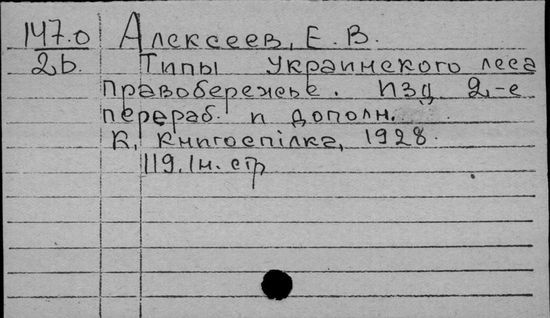 147.0 Алексеев, Е. В.
2b. Типы украинского леса
правобережье. Изд 2-е
перераб. и дополн.
К, Книгоспілка, 1928.
119.1н. стр